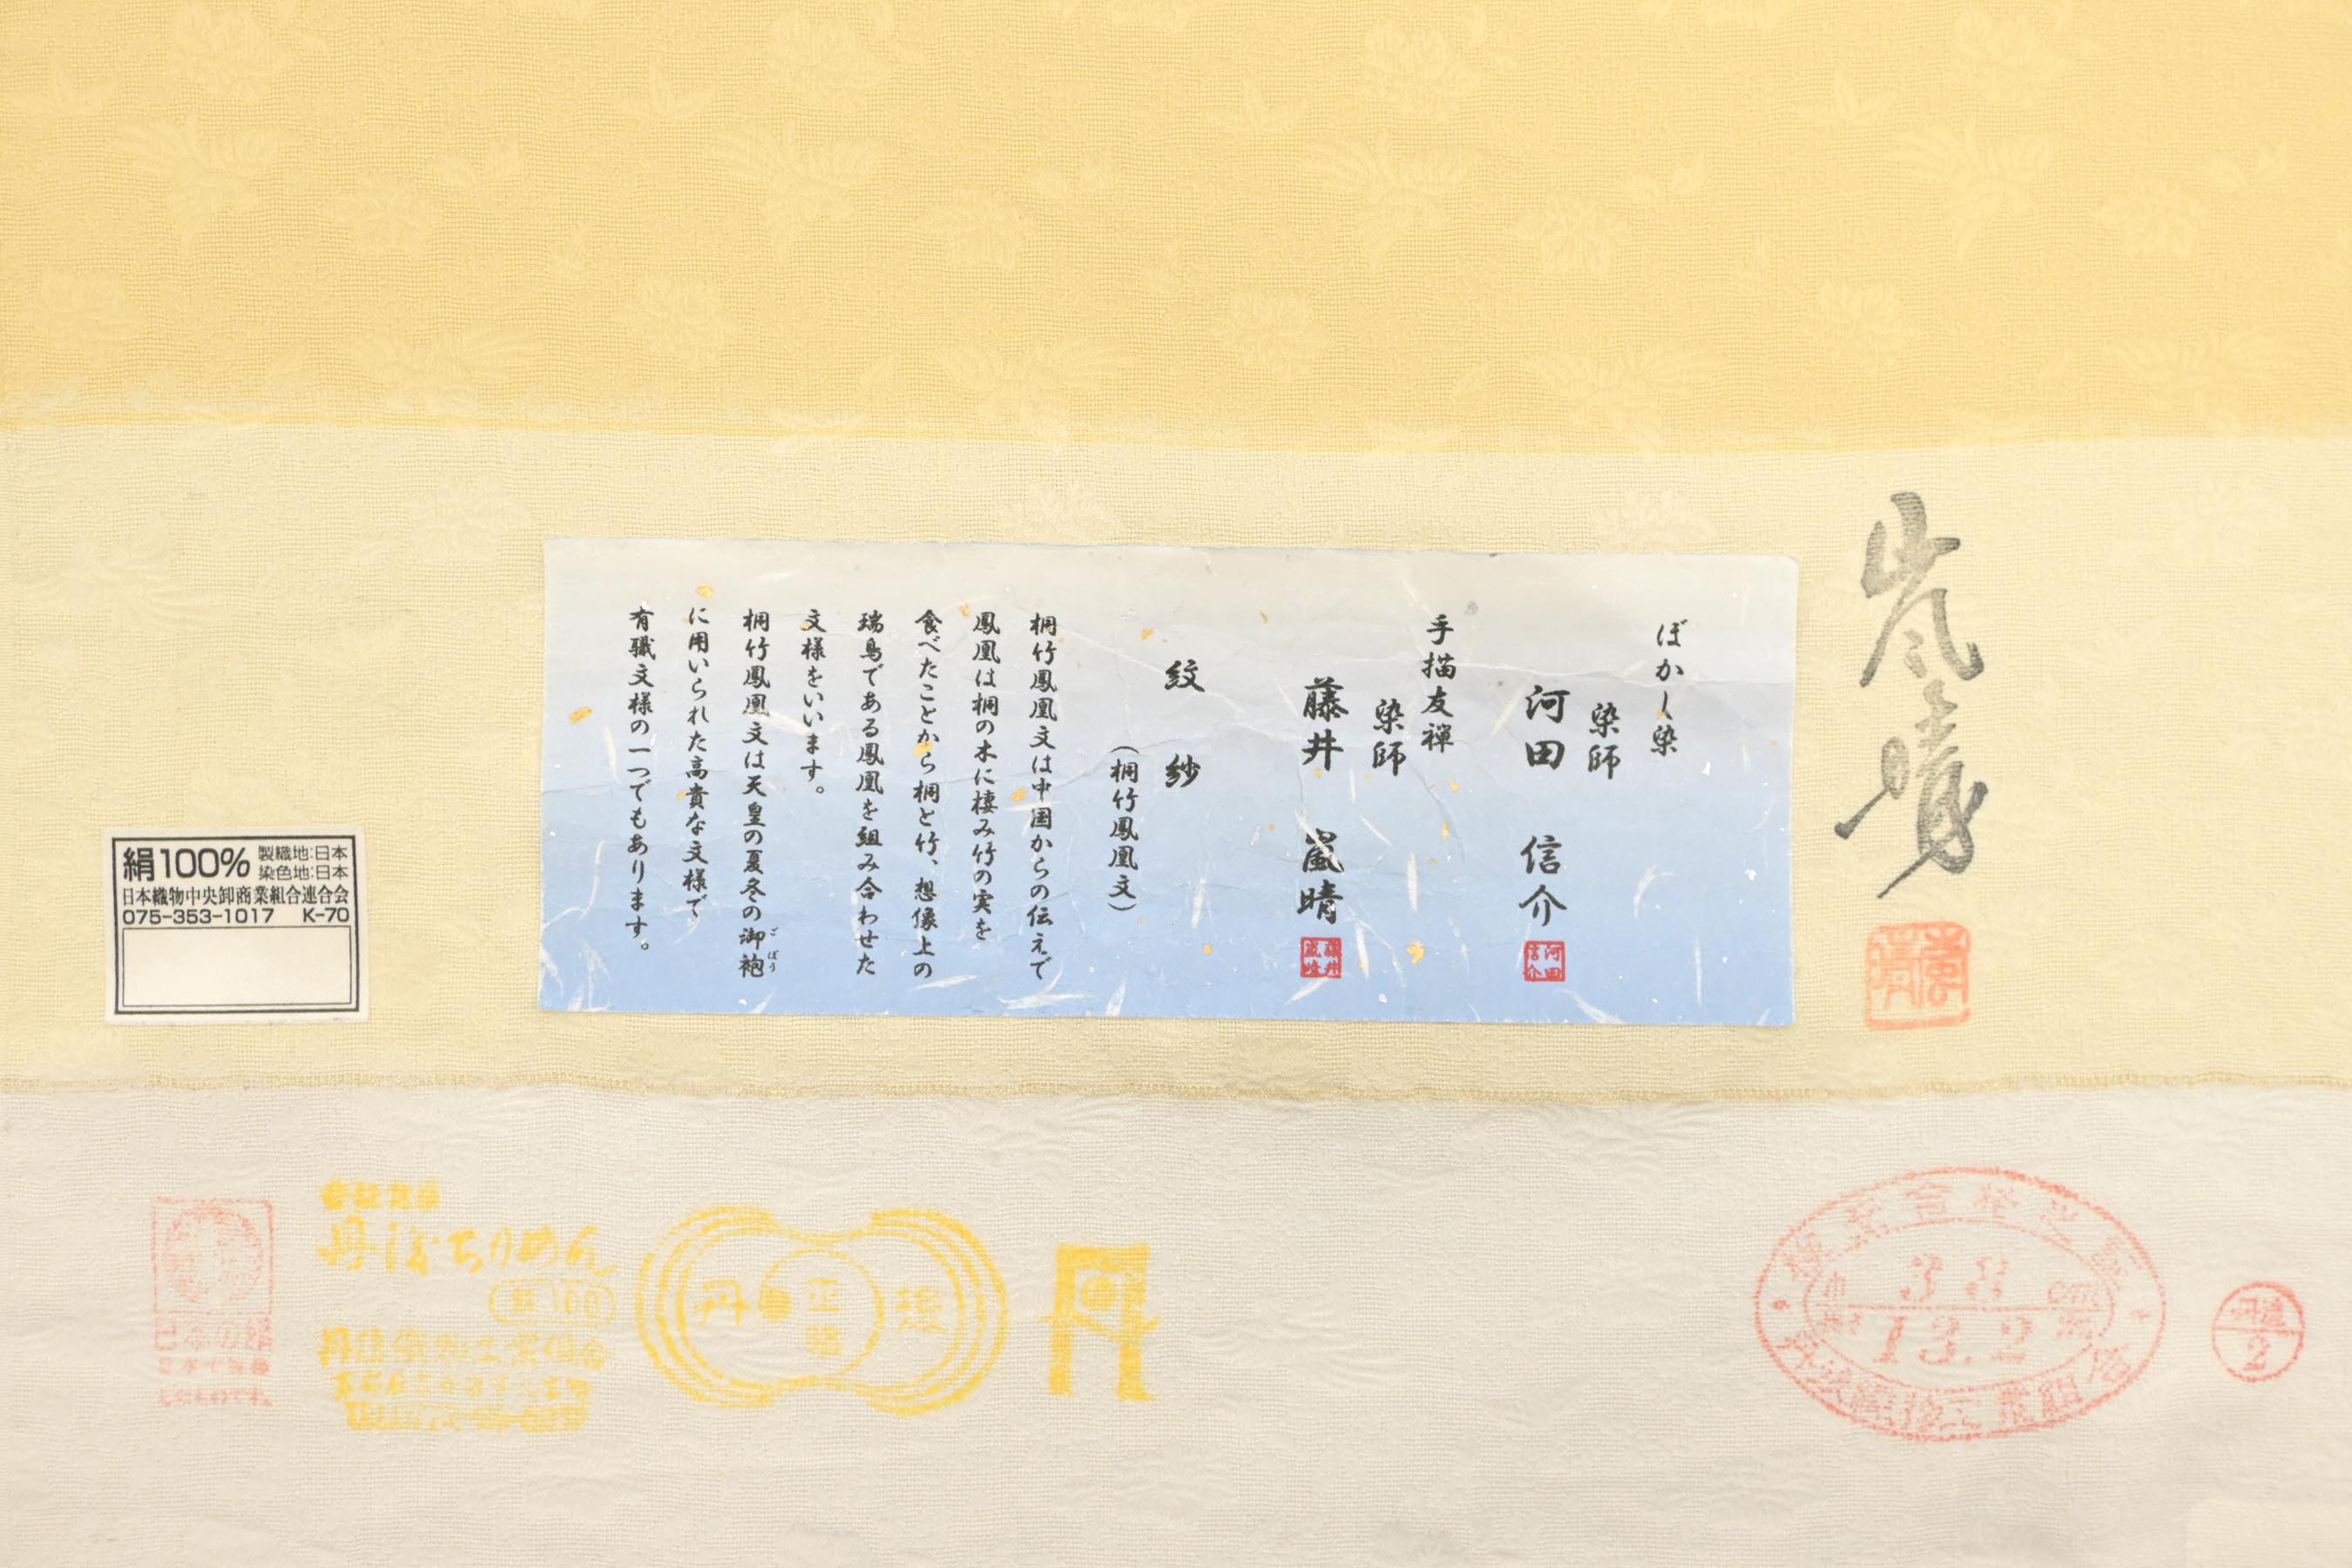 ぼかし染
染師
河田 信介
河田
信介
手描友禅
染師
藤井 嵐晴
藤井
嵐晴
紋 紗
(桐竹鳳凰文)
桐竹鳳凰文は中国からの伝えで
鳳凰は桐の木に棲み竹の実を
食べたことから桐と竹、想像上の
瑞鳥である鳳凰を組み合わせた
文様をいいます。
桐竹鳳凰文は天皇の夏冬の御袍
ごぼう
に用いられた高貴な文様で
有職文様の一つでもあります。
嵐晴
嵐晴
絹100%
製織地:日本
染色地:日本
日本織物中央卸商業組合連合会
075-353-1017 K-70
日本の絹
丹後ちりめん
絹100
丹後織物工業組合
丹 正絹 後
丹
13.2
丹後織物工業組合
2